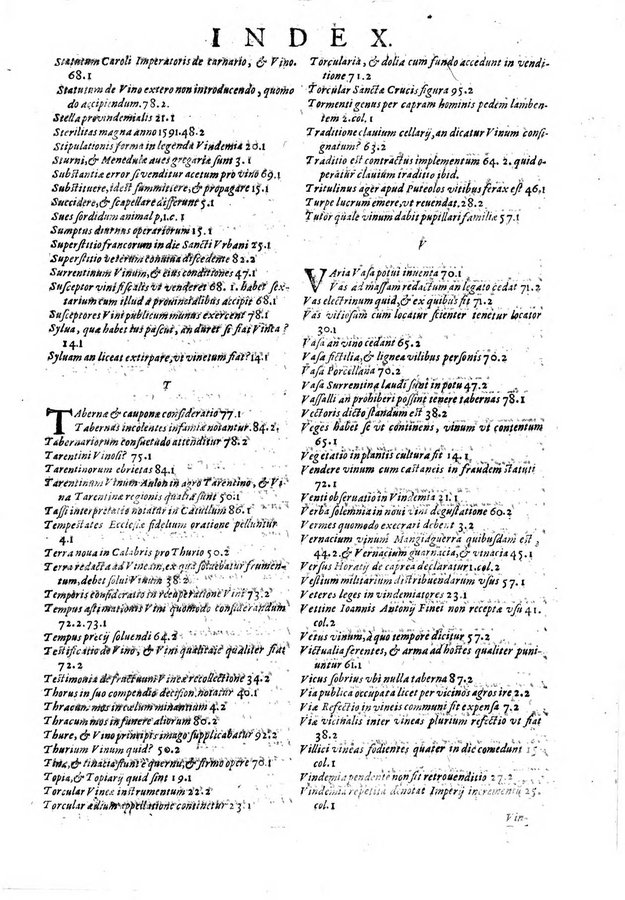 INDEX.
Statutum Caroli Imperatoris de carnario, & Vino.
68.1
Statutum de Vino extero non introducendo, quomo
do accipiendum. 78.2.
Stella provindemialis 21.1
Sterilitas magna anno 1591. 48.2
Stipulationis forma in legenda Vindemia 20.1
Sturni, & Menedulæ aues gregariæ sunt 3.1
Substantiæ error si venditur acetum pro vino 69.1
Substituere, idest summittere, & propagare 15.1
Succidere, & scapellare differunt 5.1
Sues sordidum animal p.1.c.1
Sumptus diurnus operariorum 15.1
Superstitio francorum in die Sancti Vrbani 25.1
Superstitio veterum in cœna discedente 82.2
Surrentinum Vinum, & eius conditiones 47.1
Susceptor vini fiscalis vt venderet 68.1. habet sex-
tarium cum illud à prouincialibus accipit 68.1
Susceptores Vini publicum munus exercent 78.1
Sylua, quæ habet ius pascui, an duret si fiat Vinea?
14.1
Syluam an liceat extirpare, vt vinetum fiat? 14.1
T
TAbernæ & cauponæ consideratio 77.1
Tabernas incolentes infamiæ notantur. 84.2.
Tabernariorum consuetudo attenditur 78.2
Tarentini Vinosi? 75.1
Tarentinorum ebrietas 84.1
Tarentinum Vinum Aulon in agro Tarentino, & Vi
na Tarentinæ regionis qualia sunt 50.1
Tassi interpretatio notatur in Catullum 86.1
Tempestates Ecclesiæ fidelium oratione pelluntur
4.1
Terra noua in Calabris pro Thurio 50.2
Terra redacta ad Vineam, ex qua soluebatur frumen-
tum, debet solui Vinum 38.2
Temporis consideratio in recuperatione Vini 73.2
Tempus æstimationis Vini quomodo considerandum
72.2.73.1
Tempus precij soluendi 64.2
Testificatio de Vino, & Vini qualitate qualiter fiat
72.2
Testimonia de fructuum Vineæ recollectione 34.2
Thorus in suo compendio decision. notatur 40.1
Thracum mos in cælum minantium 4.2
Thracum mos in funere aliorum 80.2
Thure, & Vino principis imago supplicabatur 92.2
Thurium Vinum quid? 50.2
Tinæ, & tinacia sunt è quernu, & firmo opere 70.1
Topia, & Topiarij quid sint 19.1
Torcular Vineæ instrumentum 22.2
Torcular ædium appellatione continetur 23.1
Torcularia, & dolia cum fundo accedunt in vendi-
tione 71.2
Torcular Sancta Crucis figura 95.2
Tormenti genus per capram hominis pedem lamben-
tem 2.col.1
Traditione clauium cellarij, an dicatur Vinum consi-
gnatum? 63.2
Traditio est contractus implementum 64.2. quid o-
peratur clauium traditio ibid.
Tritulinus ager apud Puteolos vitibus ferax est 46.1
Turpe lucrum emere, vt reuendat. 28.2
Tutor quale vinum dabit pupillari familiæ 57.1
V
VAria Vasa potui inuenta 70.1
Vas ad massam redactum an legato cedat 71.2
Vas electrinum quid, & ex quibus fit 71.2
Vas vitiosum cum locatur scienter tenetur locator
30.1
Vasa an vino cedant 65.2
Vasa fictilia, & lignea vilibus personis 70.2
Vasa Porcellana 70.2
Vasa Surrentina laudi sunt in potu 47.2
Vassalli an prohiberi possint tenere tabernas 78.1
Vectoris dicto standum est 38.2
Veges habet se vt continens, vinum vt contentum
65.1
Vegetatio in plantis cultura fit 14.1
Vendere vinum cum castaneis in fraudem statuti
72.1
Venti obseruatio in Vindemia 21.1
Verba solemnia in noui vini degustatione 60.2
Vermes quomodo execrari debent 3.2
Vernacium vinum Mangiaguerra quibusdam est,
44.2. & Vernacium guarnacia, & vinacia 45.1
Versus Horatij de caprea declaratur 1.col.2
Vestium militarium distribuendarum vsus 57.1
Veteres leges in vindemiatores 23.1
Vettinæ Ioannis Antonij Finei non receptæ vsu 41.
col.2
Vetus vinum, à quo tempore dicitur 57.2
Victualia ferentes, & arma ad hostes qualiter puni-
untur 61.1
Vicus sobrius vbi nulla taberna 87.2
Via publica occupata licet per vicinos agros ire 2.2
Viæ Refectio in vineis communi fit expensa 7.2
Viæ vicinalis inter vineas plurium refectio vt fiat
38.2
Villici vineas fodientes quater in die comedunt 15
col.1
Vindemia pendente non fit retrouenditio 27.2
Vindemia repetita denotat Imperij incrementū 25.
col.1
Vin-